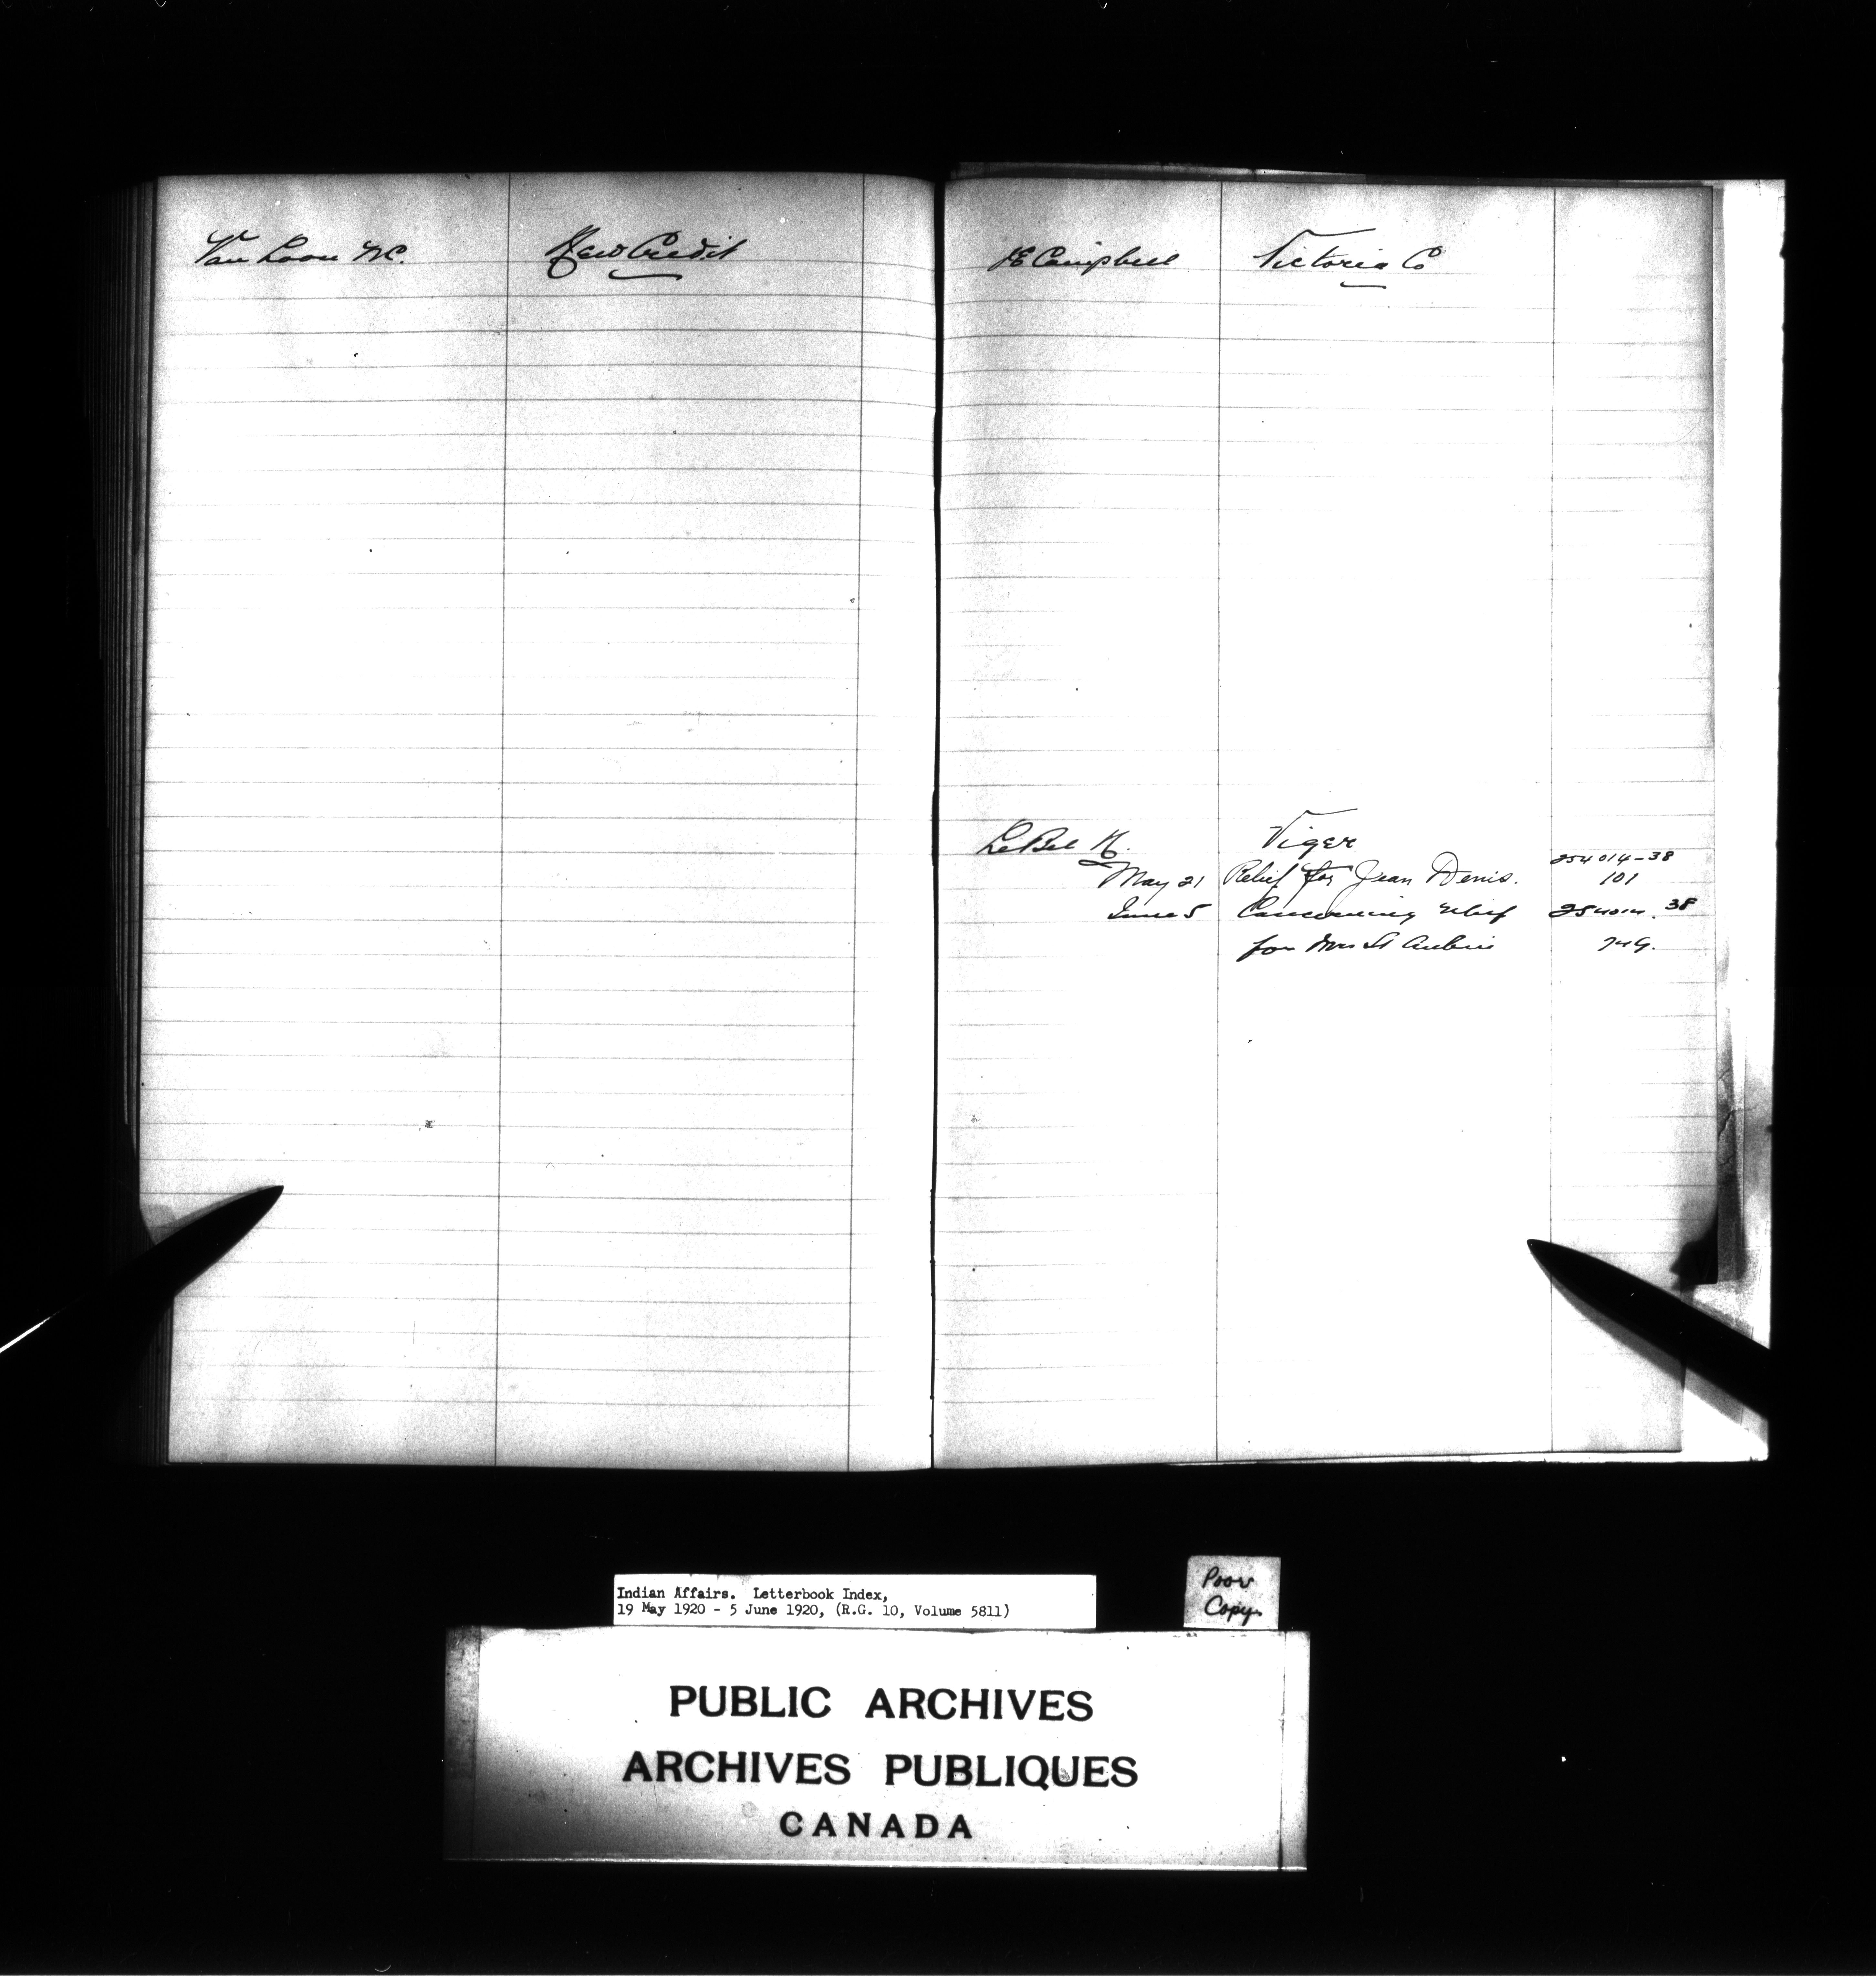 Van Loon W.C. New Credit
JE Campbell Victoria Co
LeBel N. Viger
254014-38
May 21 Relief for Jean Denis. 101
June 5 Concerning relief 254014. 38
for Mrs St Aubin 749.
Indian Affairs. Letterbook Index,
19 May 1920 - 5 June 1920, (R.G. 10, Volume 5811)
Poor
Copy.
PUBLIC ARCHIVES
ARCHIVES PUBLIQUES
CANADA